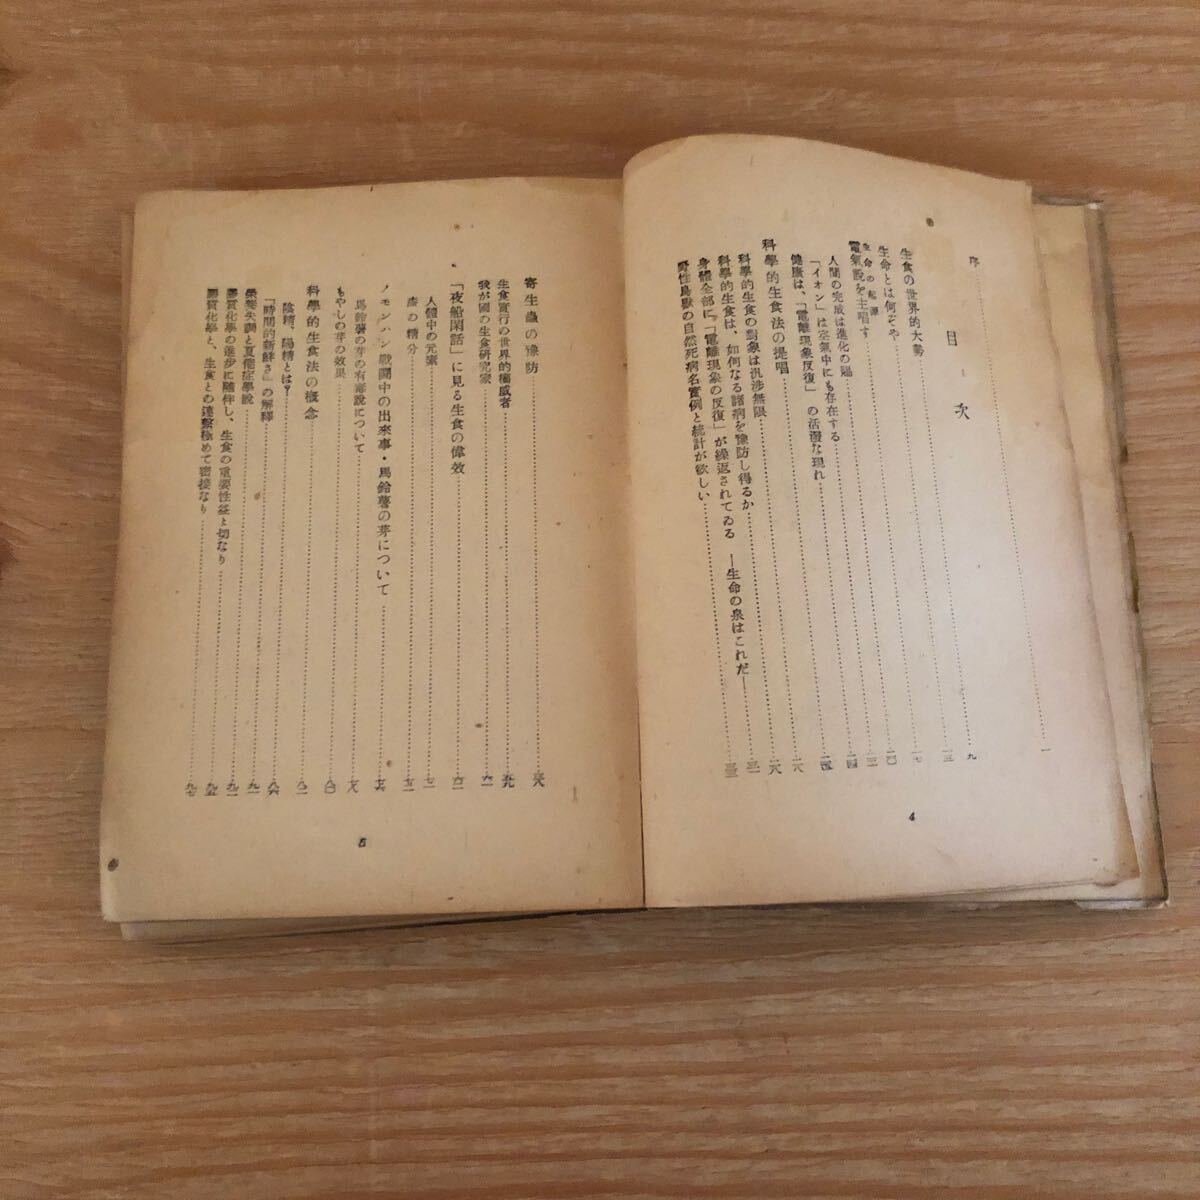 目次
序……一
生食の世界的大勢……九
生命とは何ぞや……一三
生命の起源
電氣説を主唱す……一七
人間の完成は進化の賜……二〇
「イオン」は空氣中にも存在する
健康は、「電離現象反復」の活潑な現れ
科學的生食法の提唱
科學的生食の對象は汎渉無限
科學的生食は、如何なる諸病を豫防し得るか
身體全部に「電離現象の反復」が繰返されてゐる ―生命の泉はこれだ―
野性鳥獸の自然死病名實例と統計が欲しい
4
寄生蟲の豫防
生食實行の世界的權威者
我が國の生食研究家
「夜船閑話」に見る生食の偉效
人體中の元素
ノモンハン戰鬪中の出來事・馬鈴薯の芽について
馬鈴薯の芽の有毒説について
もやしの芽の效果
科學的生食法の概念
陰精、陽精とは?
「時間的新鮮さ」の解釋
榮養失調と夏衰症學説
膠質化學の進歩に隨伴し、生食の重要性益々切なり
膠質化學と、生食との連繫極めて密接なり
5